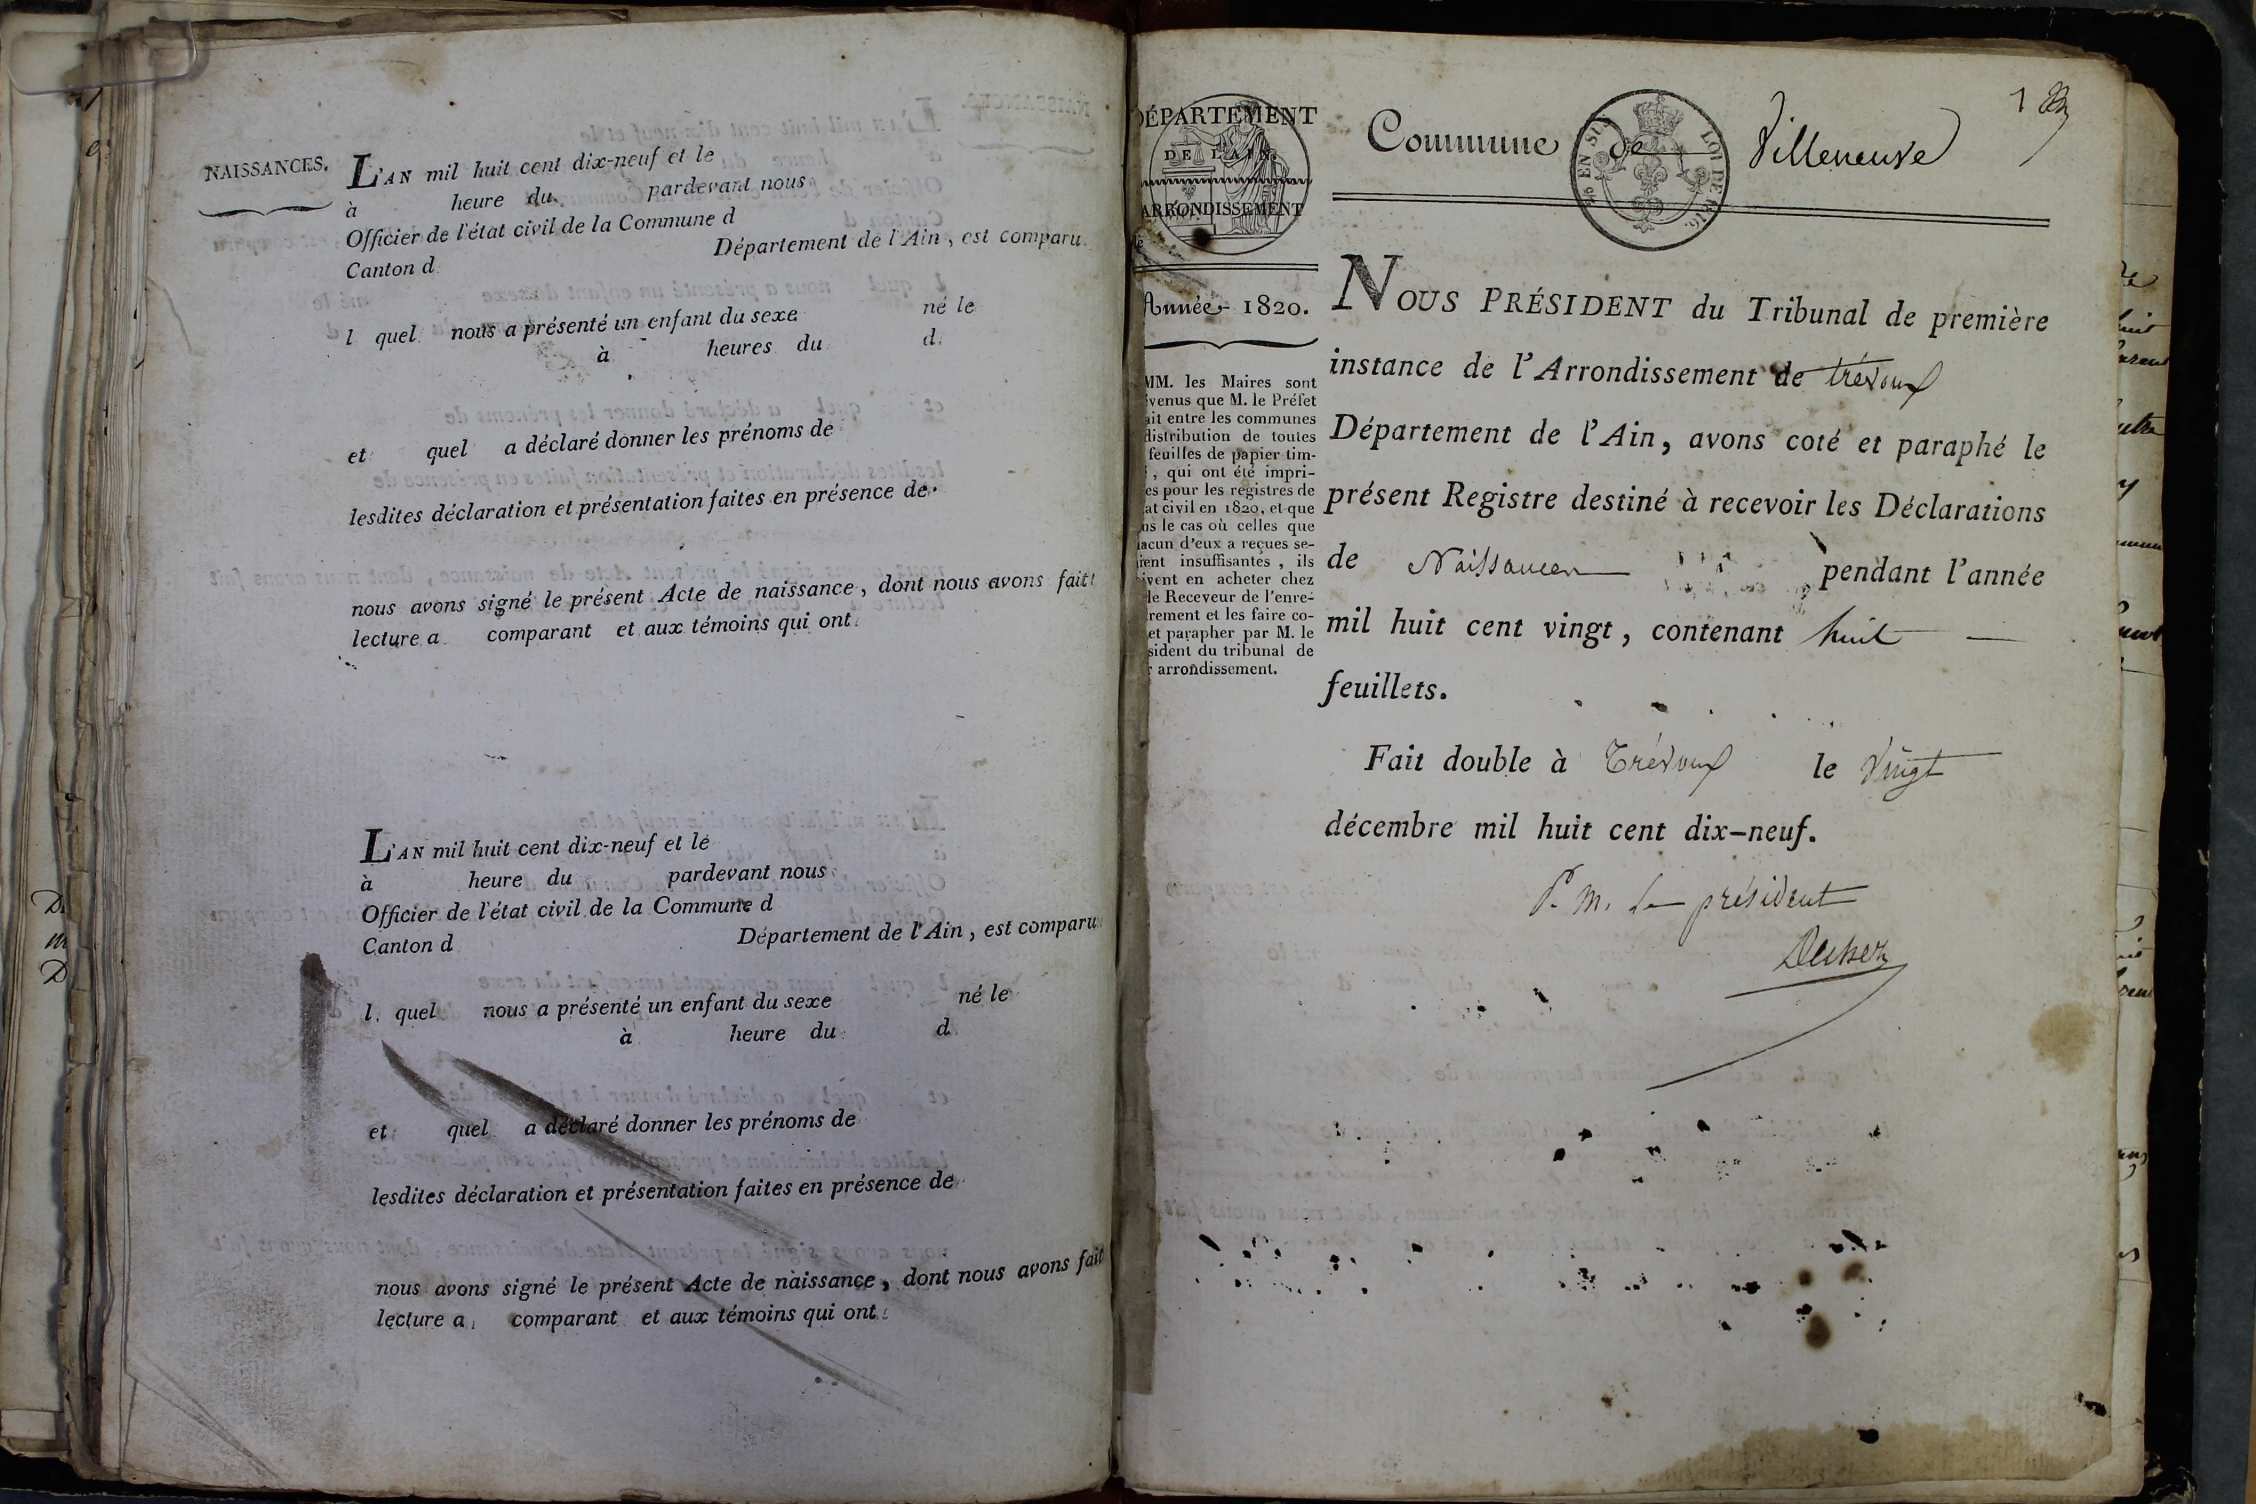 NAISSANCES.
L'AN mil huit cent dix-neuf et le
à heure du pardevant nous
Officier de l'état civil de la Commune d
Canton d Département de l'Ain, est comparu
l quel nous a présenté un enfant du sexe né le
à heures du d
et quel a déclaré donner les prénoms de
lesdites déclaration et présentation faites en présence de
nous avons signé le présent Acte de naissance, dont nous avons fait
lecture a comparant et aux témoins qui ont
L'AN mil huit cent dix-neuf et le
à heure du pardevant nous
Officier de l'état civil de la Commune d
Canton d Département de l'Ain, est comparu
l quel nous a présenté un enfant du sexe né le
à heure du d
et quel a déclaré donner les prénoms de
lesdites déclaration et présentation faites en présence de
nous avons signé le présent Acte de naissance, dont nous avons fait
lecture a comparant et aux témoins qui ont
1
DÉPARTEMENT
DE L'AIN.
ARRONDISSEMENT
Année 1820.
MM. les Maires sont
évenus que M. le Préfet
ait entre les communes
distribution de toutes
feuilles de papier tim-
, qui ont été impri-
es pour les registres de
at civil en 1820, et que
ns le cas où celles que
acun d'eux a reçues se-
ient insuffisantes, ils
ivent en acheter chez
le Receveur de l'enre-
rement et les faire co-
et parapher par M. le
sident du tribunal de
r arrondissement.
Commune de Villeneuve
EN SUS LOI DE 1816.
NOUS PRÉSIDENT du Tribunal de première
instance de l'Arrondissement de trévoux
Département de l'Ain, avons coté et paraphé le
présent Registre destiné à recevoir les Déclarations
de Naissances pendant l'année
mil huit cent vingt, contenant huit
feuillets.
Fait double à Trévoux le vingt
décembre mil huit cent dix-neuf.
P. M. Le président